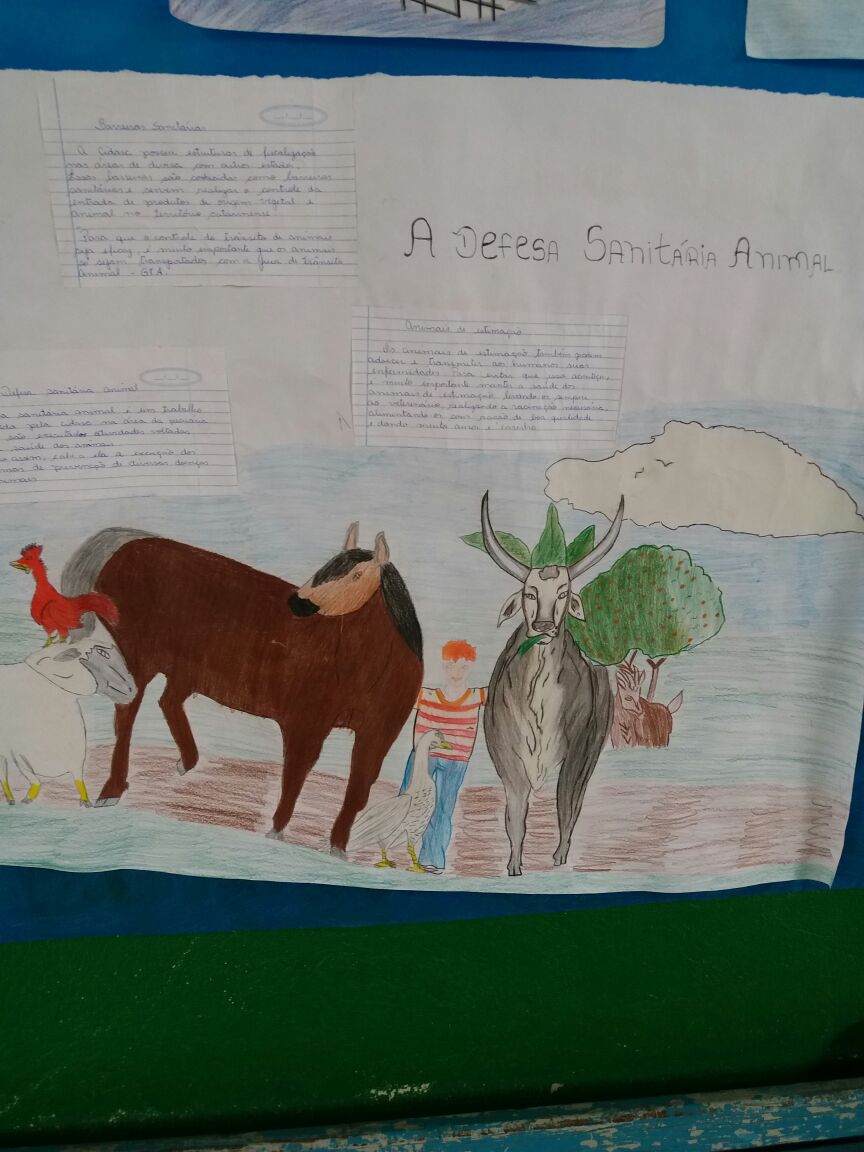 Barreiras Sanitárias
A Cidasc possui estruturas de fiscalização
nas áreas de divisa com outros estados.
Essas barreiras são conhecidas como barreiras
sanitárias e servem realizar o controle da
entrada de produtos de origem vegetal e
animal no território catarinense.
Para que o controle de trânsito de animais
seja eficaz, é muito importante que os animais
só sejam transportados com a guia de trânsito
animal - GTA.
A Defesa Sanitária Animal
Animais de estimação
Os animais de estimação também podem
adoecer e transmitir aos humanos suas
enfermidades. Para evitar que isso aconteça,
é muito importante manter a saúde dos
animais de estimação, levando os sempre
ao veterinário, realizando a vacinação necessária,
alimentando os com ração de boa qualidade
e dando muito amor e carinho.
Defesa sanitária animal
a sanitária animal é um trabalho
pela cidasc na área da pecuária
são executadas atividades voltadas
saúde dos animais
assim, cabe a ela a execução dos
de prevenção de diversas doenças